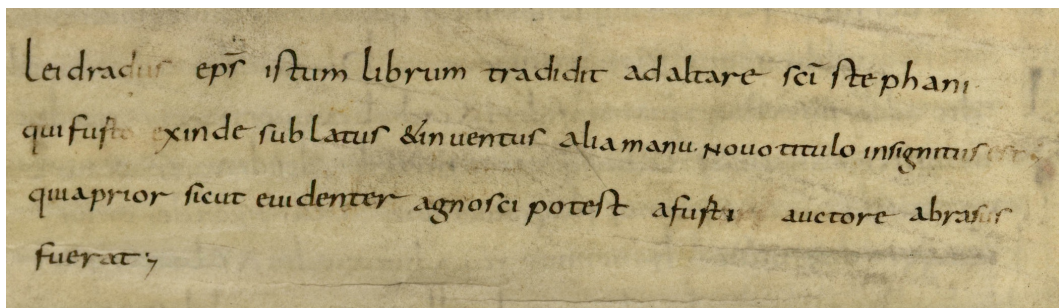 Leidradus ep̅s istum librum tradidit ad altare sc̅i stephani
qui fusto exinde sublatus & inventus alia manu. Novo titulo insignitus est
quia prior sicut evidenter agnosci potest a fusti auctore abrasus
fuerat;